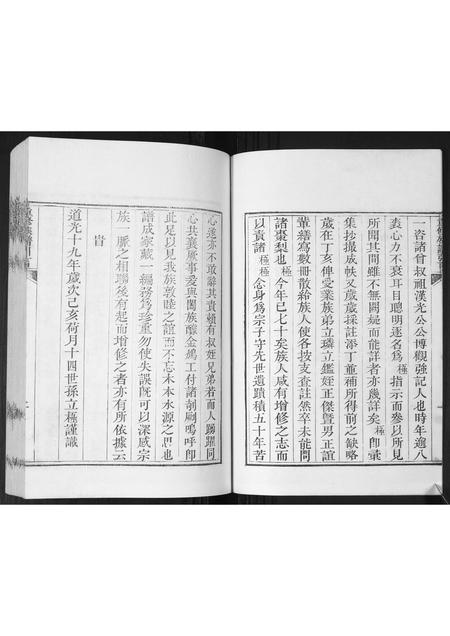 一咨諸曾叔祖漢光公公博觀強記人也時年逾八
袠心力不衰耳目聰明逐名爲極指示而參以所見
所聞其間雖不無闕疑而能詳者亦幾詳矣極卽彙
集抄撮成帙又歲歲採註添丁並補所得前之缺略
歲在丁亥俾受業族弟立璘立鑑姪正傑暨男正誼
輩繕寫數冊散給族人使各按支查註然卒未能問
諸棗梨也極今年已七十矣族人咸有增修之志而
以責諸極極念身爲宗子守先世遺蹟積五十年苦
心遂亦不敢辭其責賴有叔姪兄弟若而人踴躍同
心共襄厥事爰與闔族醵金鳩工付諸剞劂嗚呼卽
此足以見我族敦睦之誼而不忘木本水源之思也
譜成家藏一編務爲珍重勿使失誤旣可以深感宗
族一脈之相聯後有起而增修之者亦有所依據云
旹
道光十九年歲次己亥荷月十四世孫立極謹識